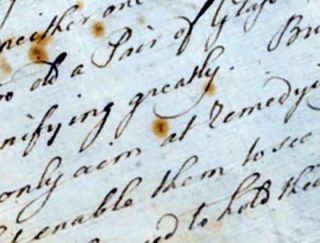 neither one
old a Pair of Glass
nifying greatly. Bu
only aim at remedyi
enable them to see
to hold the